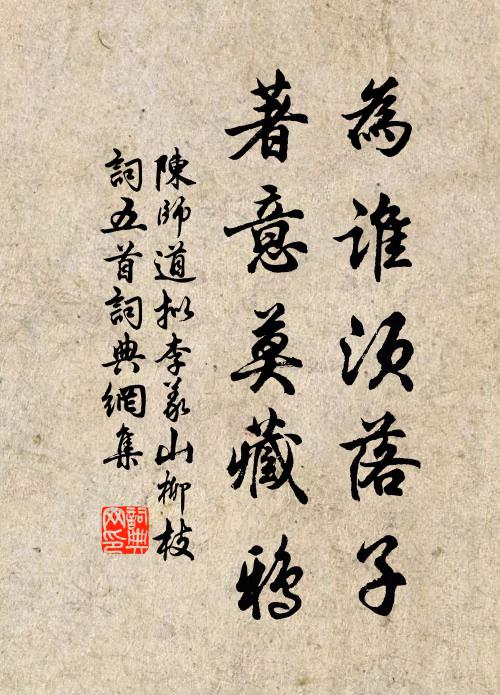 為誰須落子
著意莫藏鴉
陳師道擬李義山柳枝
詞五首詞典網集
詞典
网印